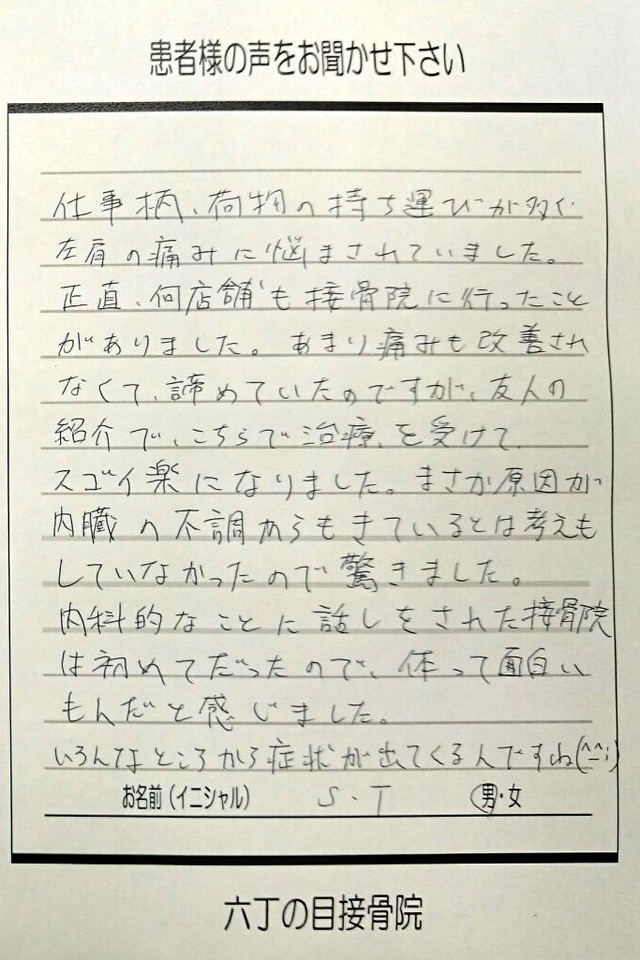 患者様の声をお聞かせ下さい
仕事柄、荷物の持ち運びが多く
左肩の痛みに悩まされていました。
正直、何店舗も接骨院に行ったこと
がありました。あまり痛みも改善され
なくて、諦めていたのですが、友人の
紹介で、こちらで治療を受けて
スゴイ楽になりました。まさか原因が
内臓の不調からもきているとは考えも
していなかったので驚きました。
内科的なことに話しをされた接骨院
は初めてだったので、体って面白い
もんだと感じました。
いろんなところから症状が出てくるんですね(^^;)
お名前(イニシャル) S・T 男・女
六丁の目接骨院